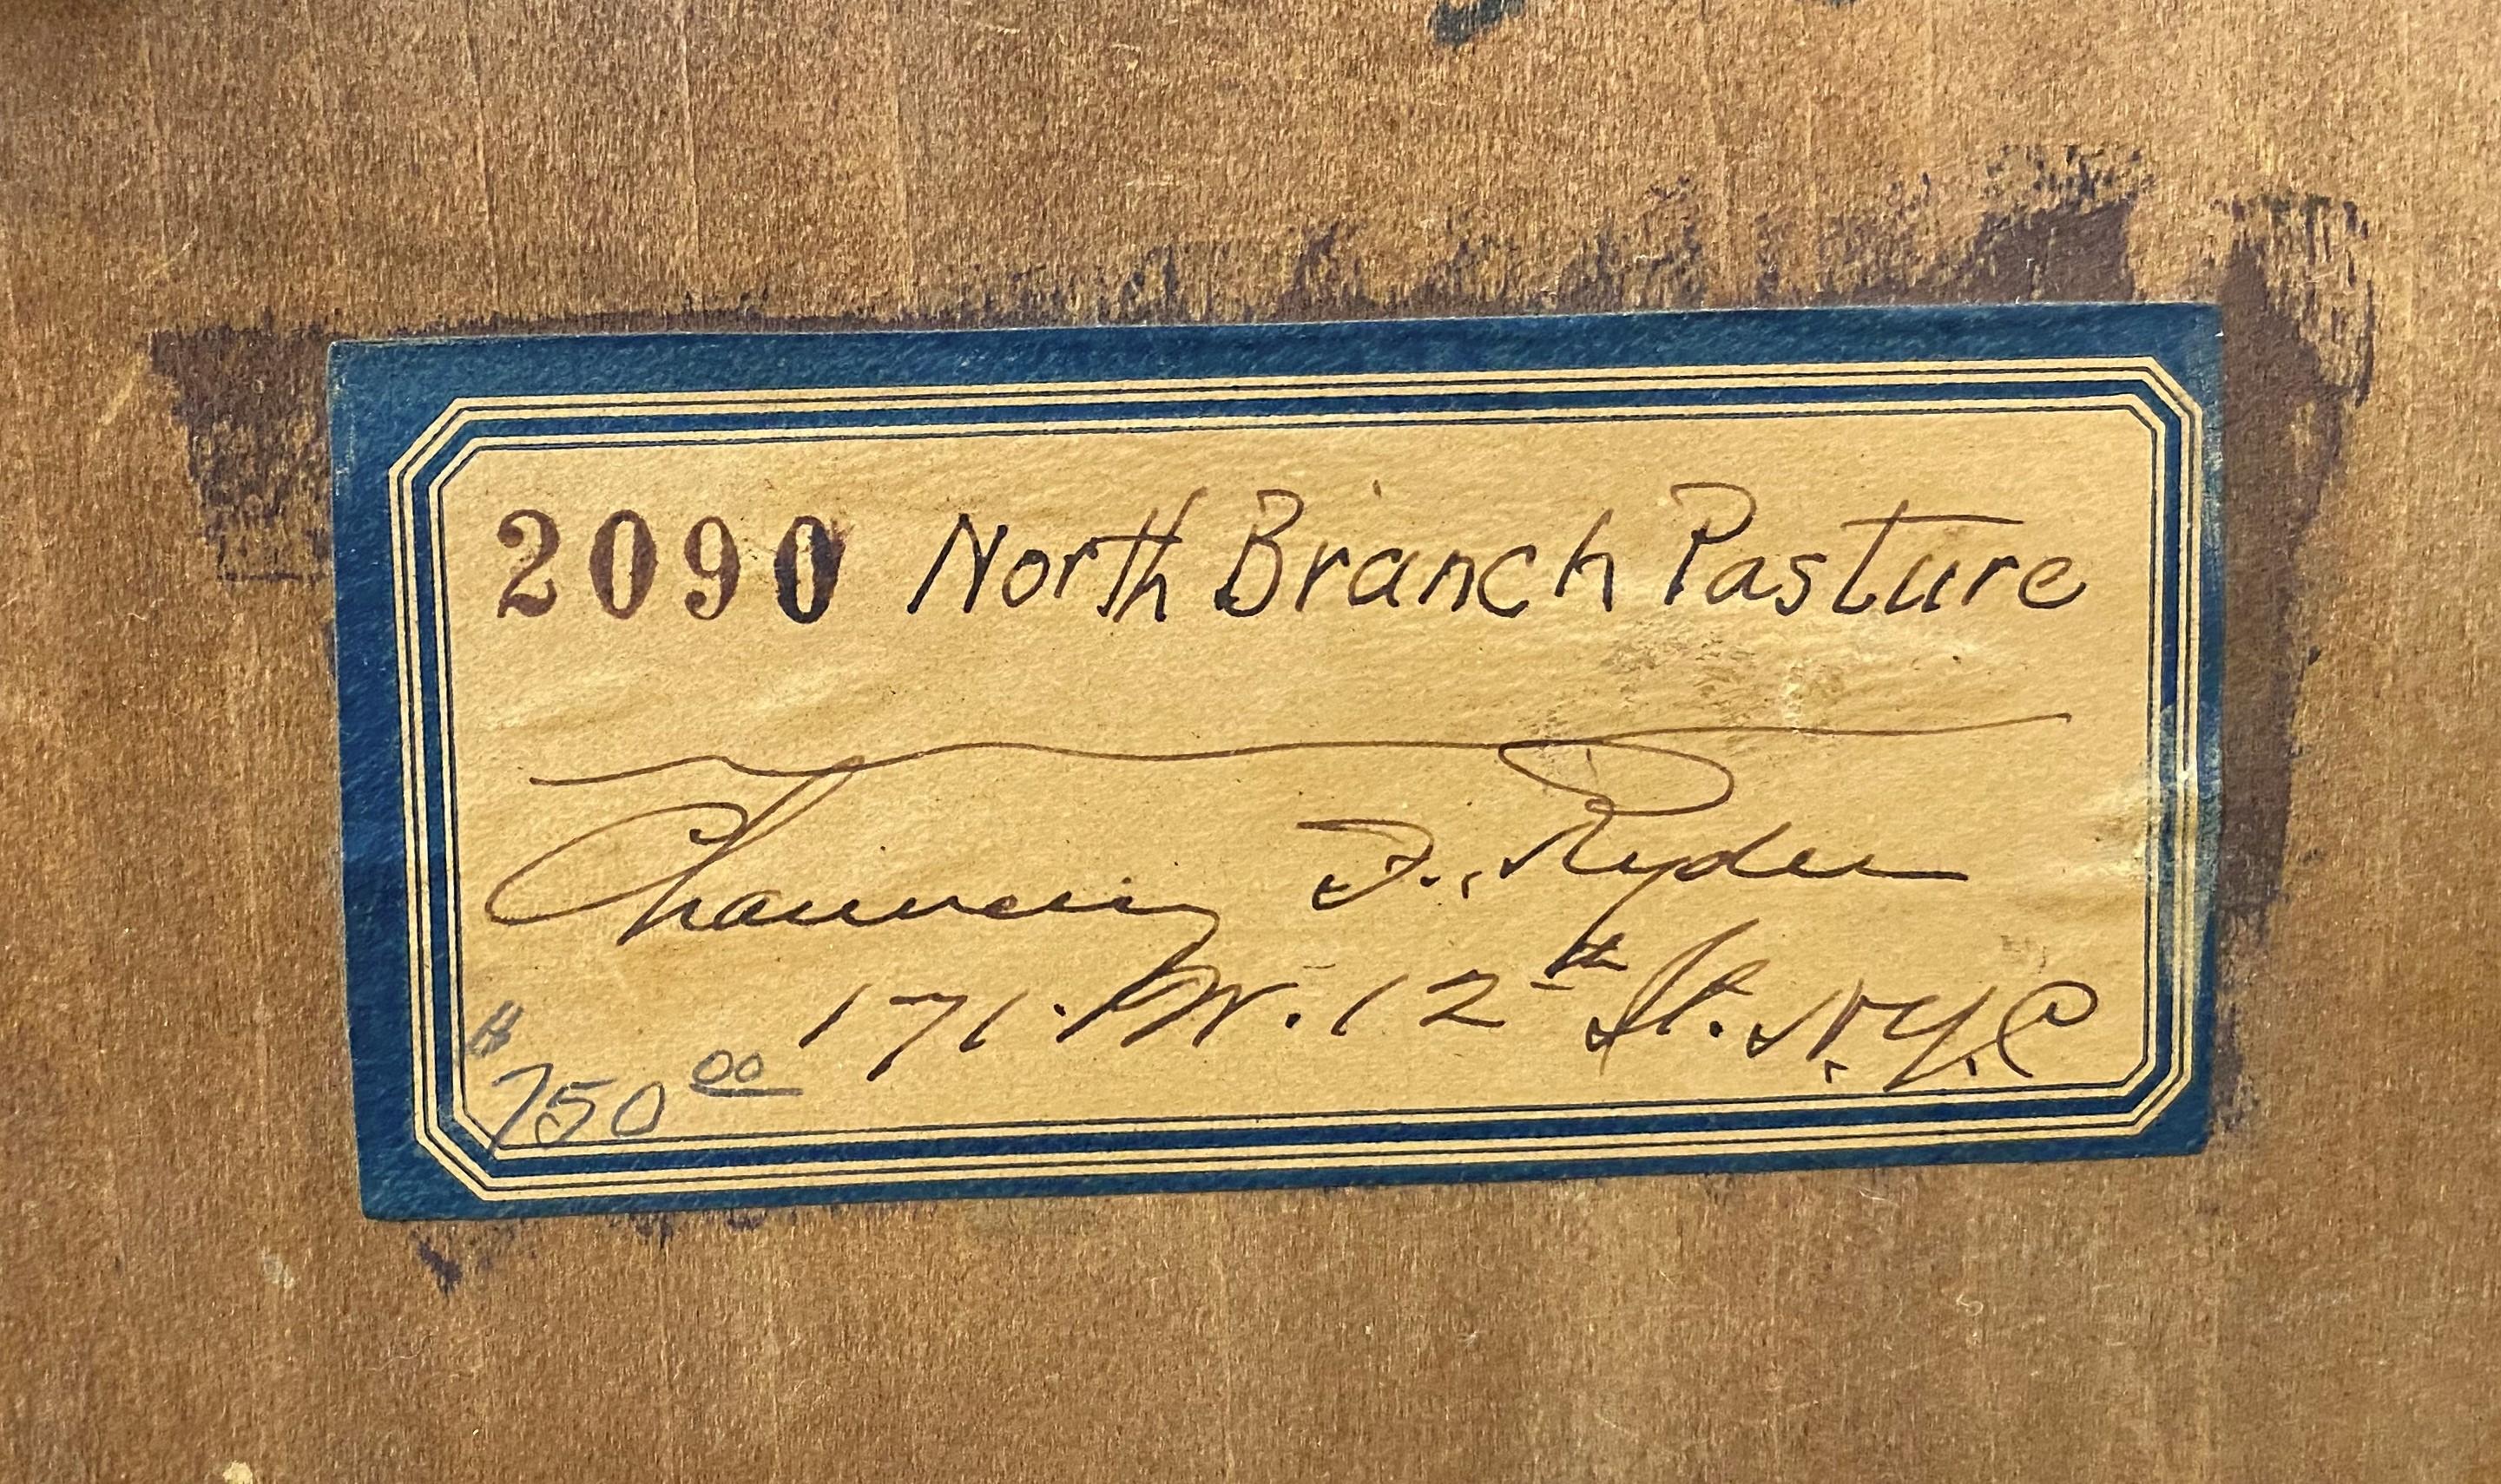 2090 North Branch Pasture
Chauncey F. Ryder
171. W. 12th St. N.Y.C
$750 00